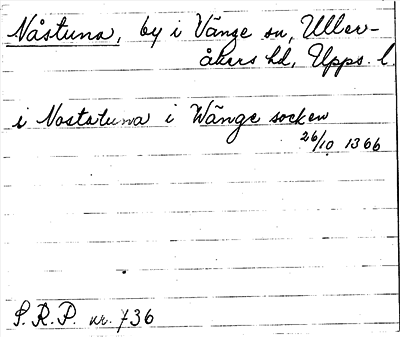 Nåstuna, by i Vänge sn, Uller-
åkers hd, Upps. l.
i Nostatuna i Wänge socken
26/10 1366
S.R.P. nr. 736